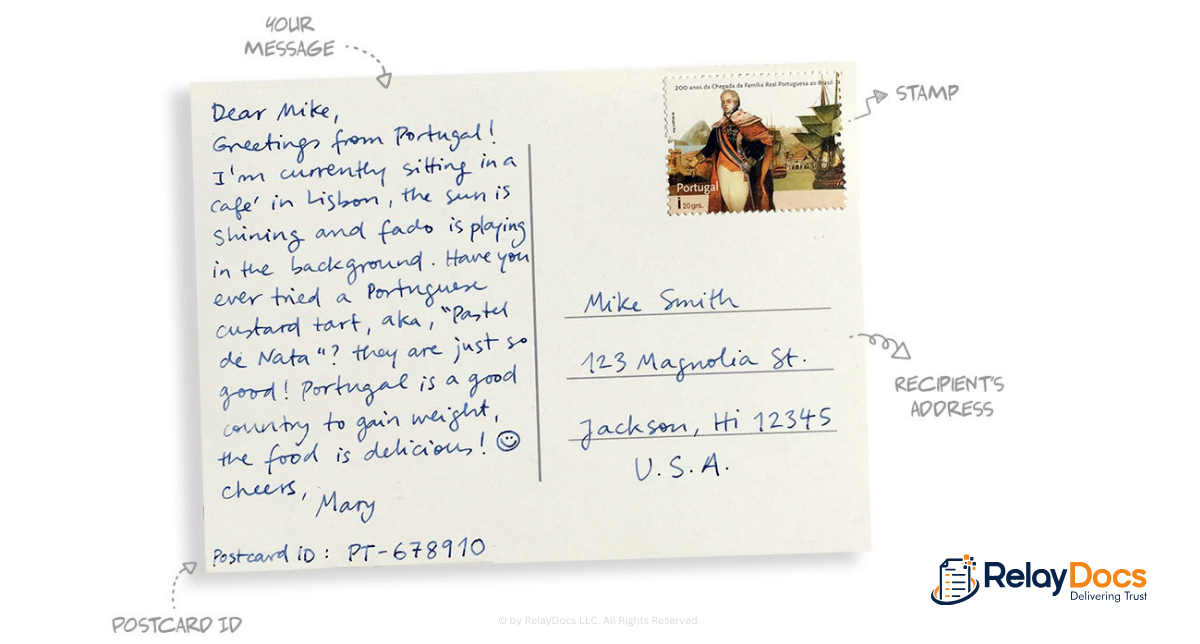 YOUR
MESSAGE
Dear Mike,
Greetings from Portugal!
I'm currently sitting in a
café in Lisbon, the sun is
shining and fado is playing
in the background. Have you
ever tried a Portuguese
custard tart, aka, "Pastel
de Nata"? they are just so
good! Portugal is a good
country to gain weight,
the food is delicious! ☺
cheers,
Mary
Postcard iD: PT-678910
POSTCARD ID
200 anos da Chegada da Família Real Portuguesa ao Brasil
Portugal
20 grs.
STAMP
Mike Smith
123 Magnolia St.
Jackson, Hi 12345
U.S.A.
RECIPIENT'S
ADDRESS
RelayDocs
Delivering Trust
© by RelayDocs LLC. All Rights Reserved.